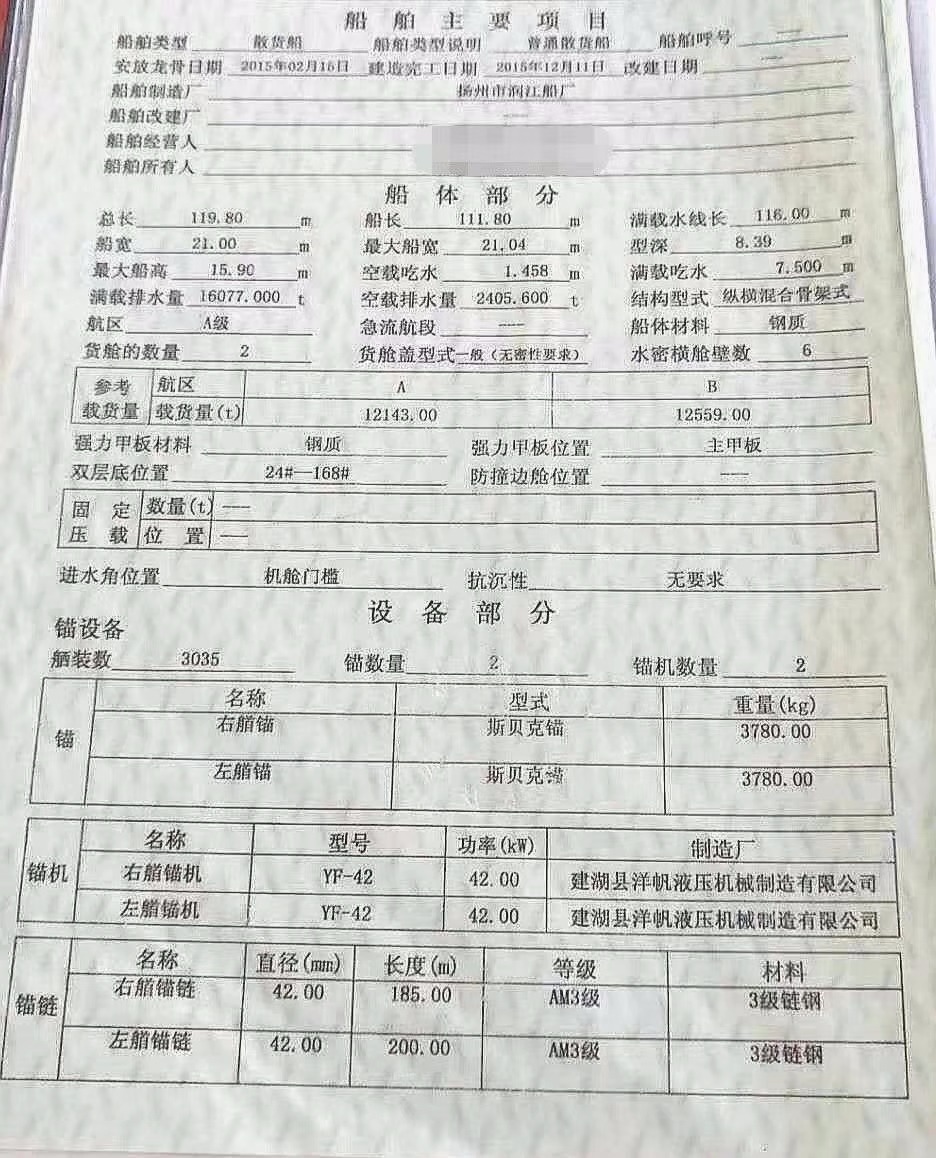 船舶主要项目
船舶类型 散货船 船舶类型说明 普通散货船 船舶呼号 ——
安放龙骨日期 2015年02月16日 建造完工日期 2015年12月11日 改建日期 ——
船舶制造厂 扬州市润江船厂
船舶改建厂 ——
船舶经营人
船舶所有人
船体部分
总长 119.80 m 船长 111.80 m 满载水线长 116.00 m
船宽 21.00 m 最大船宽 21.04 m 型深 8.39 m
最大船高 15.90 m 空载吃水 1.458 m 满载吃水 7.500 m
满载排水量 16077.000 t 空载排水量 2405.600 t 结构型式 纵横混合骨架式
航区 A级 急流航段 --- 船体材料 钢质
货舱的数量 2 货舱盖型式 一般（无密性要求） 水密横舱壁数 6
参考载货量 航区 A B
载货量(t) 12143.00 12559.00
强力甲板材料 钢质 强力甲板位置 主甲板
双层底位置 24#—168# 防撞边舱位置 ---
固定压载 数量(t) ---
位置 ---
进水角位置 机舱门槛 抗沉性 无要求
设备部分
锚设备
舾装数 3035 锚数量 2 锚机数量 2
锚 名称 型式 重量(kg)
右艏锚 斯贝克锚 3780.00
左艏锚 斯贝克锚 3780.00
锚机 名称 型号 功率(kW) 制造厂
右艏锚机 YF-42 42.00 建湖县洋帆液压机械制造有限公司
左艏锚机 YF-42 42.00 建湖县洋帆液压机械制造有限公司
锚链 名称 直径(mm) 长度(m) 等级 材料
右艏锚链 42.00 185.00 AM3级 3级链钢
左艏锚链 42.00 200.00 AM3级 3级链钢